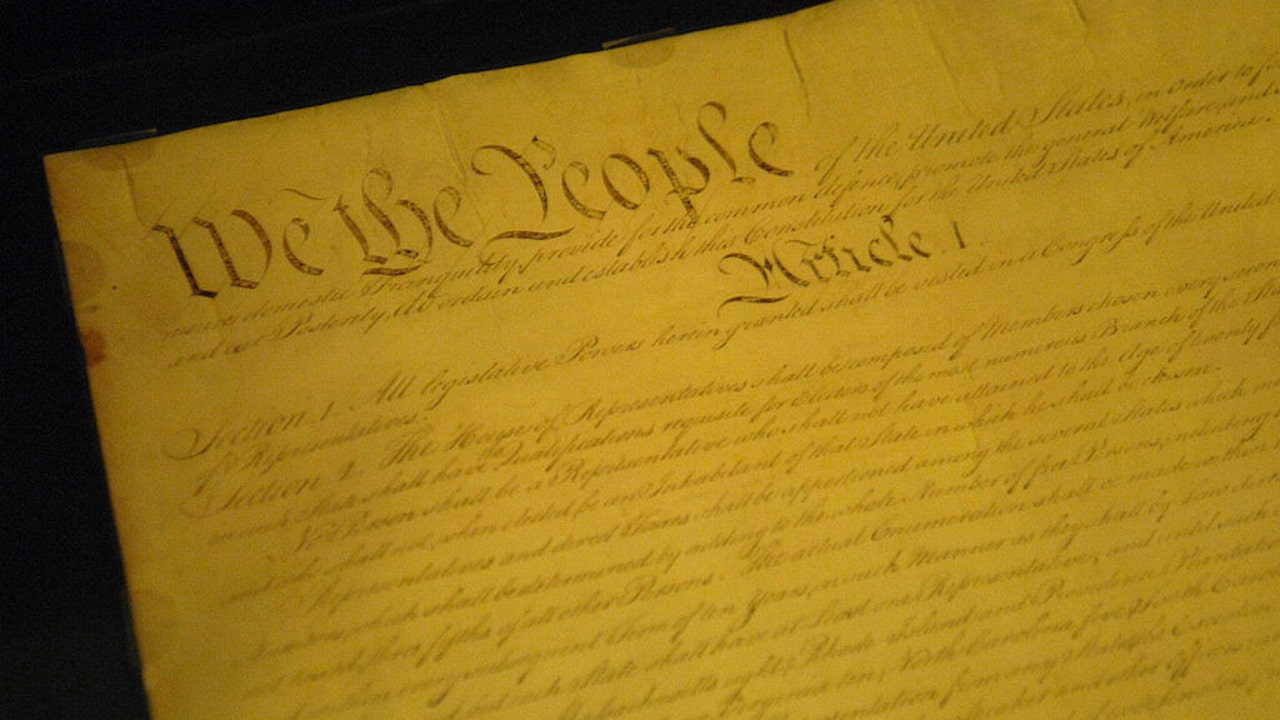 We the People of the United States, in Order to
insure domestic Tranquility, provide for the common defence, promote the general Welfare, and
and our Posterity, do ordain and establish this Constitution for the United States of America.
Article. I.
Section. 1. All legislative Powers herein granted shall be vested in a Congress of the United
of Representatives.
Section. 2. The House of Representatives shall be composed of Members chosen every second
in each State shall have Qualifications requisite for Electors of the most numerous Branch of the
No Person shall be a Representative who shall not have attained to the Age of twenty
and who shall not, when elected, be an Inhabitant of that State in which he shall be chosen.
Representatives and direct Taxes shall be apportioned among the several States which
Numbers, which shall be determined by adding to the whole Number of free Persons, including
and three fifths of all other Persons. The actual Enumeration shall be made within
within every subsequent Term of ten Years, in such Manner as they shall by Law
but each State shall have at Least one Representative; and until such
Massachusetts eight, Rhode Island and Providence Plantations
Virginia ten, North Carolina five, South
Representation from any State, the Executive
Speaker and other Officers